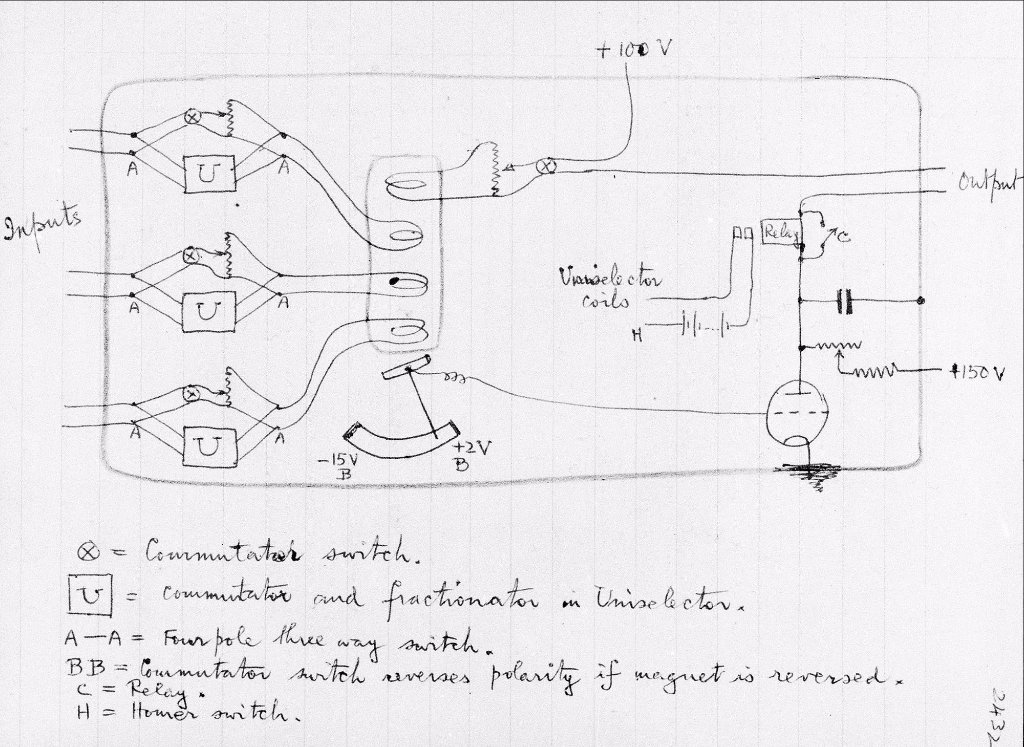 + 100 V
A
A
U
Inputs
A
A
U
A
A
U
Output
Relay
C
Uniselector
coils
H
+150 V
-15V
B
+2V
B
⊗ = Commutator switch.
U = Commutator and fractionator in Uniselector.
A—A = Four pole three way switch.
BB = Commutator switch reverses polarity if magnet is reversed.
C = Relay.
H = Homer switch.
2432